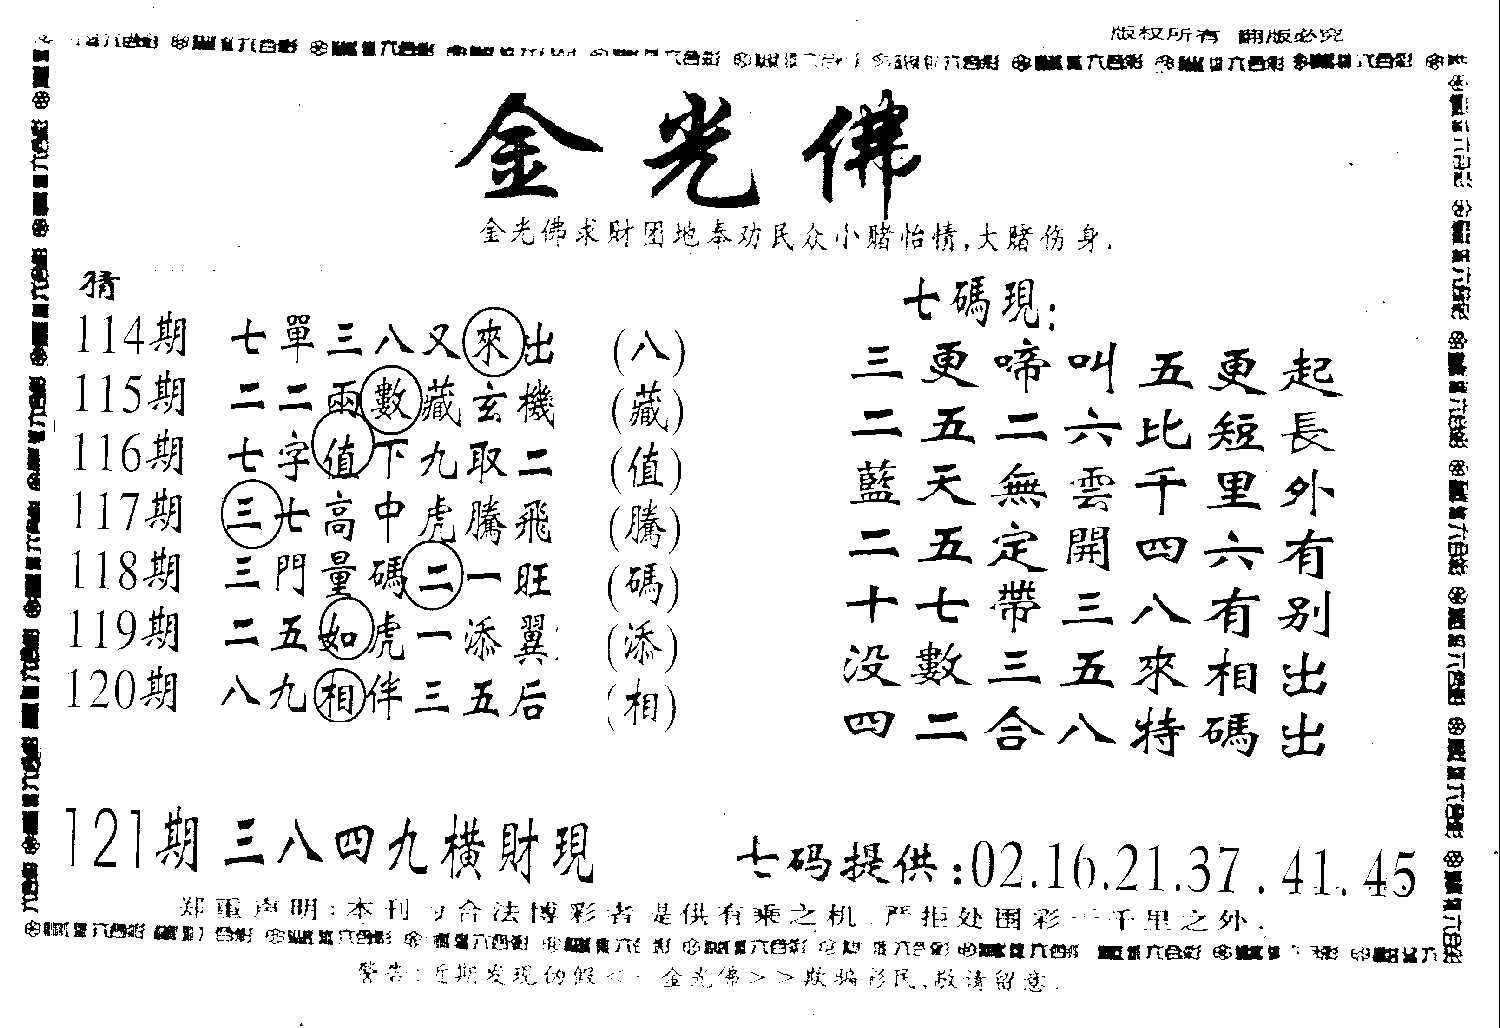 版权所有 翻版必究
金光佛
金光佛求财团地奉劝民众小赌怡情,大赌伤身.
猜
114期 七單三八又來出 (八)
115期 二二兩數藏玄機 (藏)
116期 七字值下九取二 (值)
117期 三七高中虎騰飛 (騰)
118期 三門量碼二一旺 (碼)
119期 二五如虎一添翼 (添)
120期 八九相伴三五后 (相)
七碼現:
三更啼叫五更起
二五二六比短長
藍天無雲千里外
二五定開四六有
十七帶三八有别
没數三五來相出
四二合八特碼出
121期 三八四九橫財現
七码提供:02.16.21.37.41.45
郑重声明:本刊 合法博彩者 供有乘之机 严拒处围彩 千里之外.
警告:近期发现伪假<< 金光佛>>欺骗彩民,敬请留意.